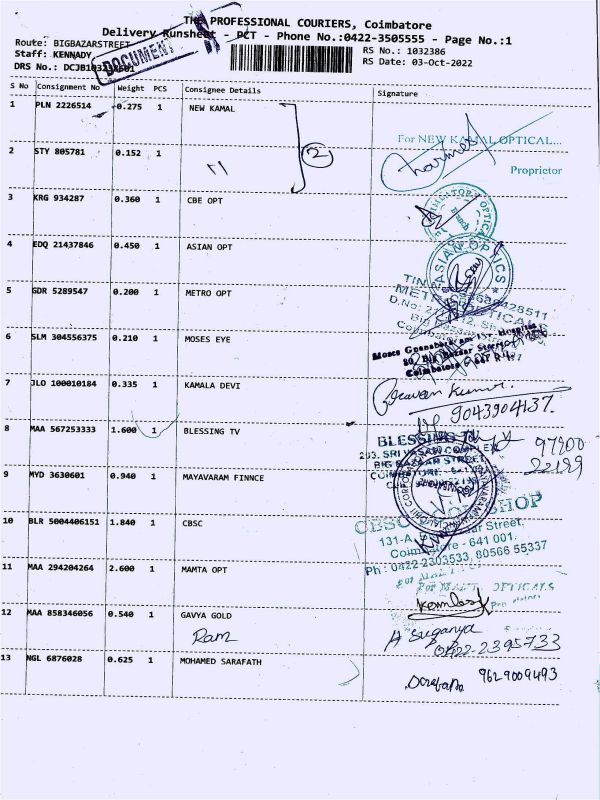 THE PROFESSIONAL COURIERS, Coimbatore
Delivery Runsheet - PCT - Phone No.:0422-3505555 - Page No.:1
Route: BIGBAZARSTREET
RS No.: 1032386
Staff: KENNADY
RS Date: 03-Oct-2022
DRS No.: DCJB103238601
DOCUMENT
S No Consignment No Weight PCS Consignee Details Signature
1 PLN 2226514 0.275 1 NEW KAMAL
For NEW KAMAL OPTICAL...
2 STY 805781 0.152 1
2
Proprietor
3 KRG 934287 0.360 1 CBE OPT
4 EDQ 21437846 0.450 1 ASIAN OPT
ASIAN OPTICS
5 GDR 5289547 0.200 1 METRO OPT
6 SLM 304556375 0.210 1 MOSES EYE
80, Big Bazaar Street
Coimbatore
7 JLO 100010184 0.335 1 KAMALA DEVI
Kumar.
9043904137.
8 MAA 567253333 1.600 1 BLESSING TV
BLESSING TV
BIG BAZAAR STREET
97900
22199
9 MYD 3630601 0.940 1 MAYAVARAM FINNCE
10 BLR 5004406151 1.840 1 CBSC
131-A, Street,
Coimbatore - 641 001.
Ph : 0422-2303533, 80566 55337
11 MAA 294204264 2.600 1 MAMTA OPT
12 MAA 858346056 0.540 1 GAVYA GOLD
Ram
A Suganya
0422-2395733
13 NGL 6876028 0.625 1 MOHAMED SARAFATH
9629009493